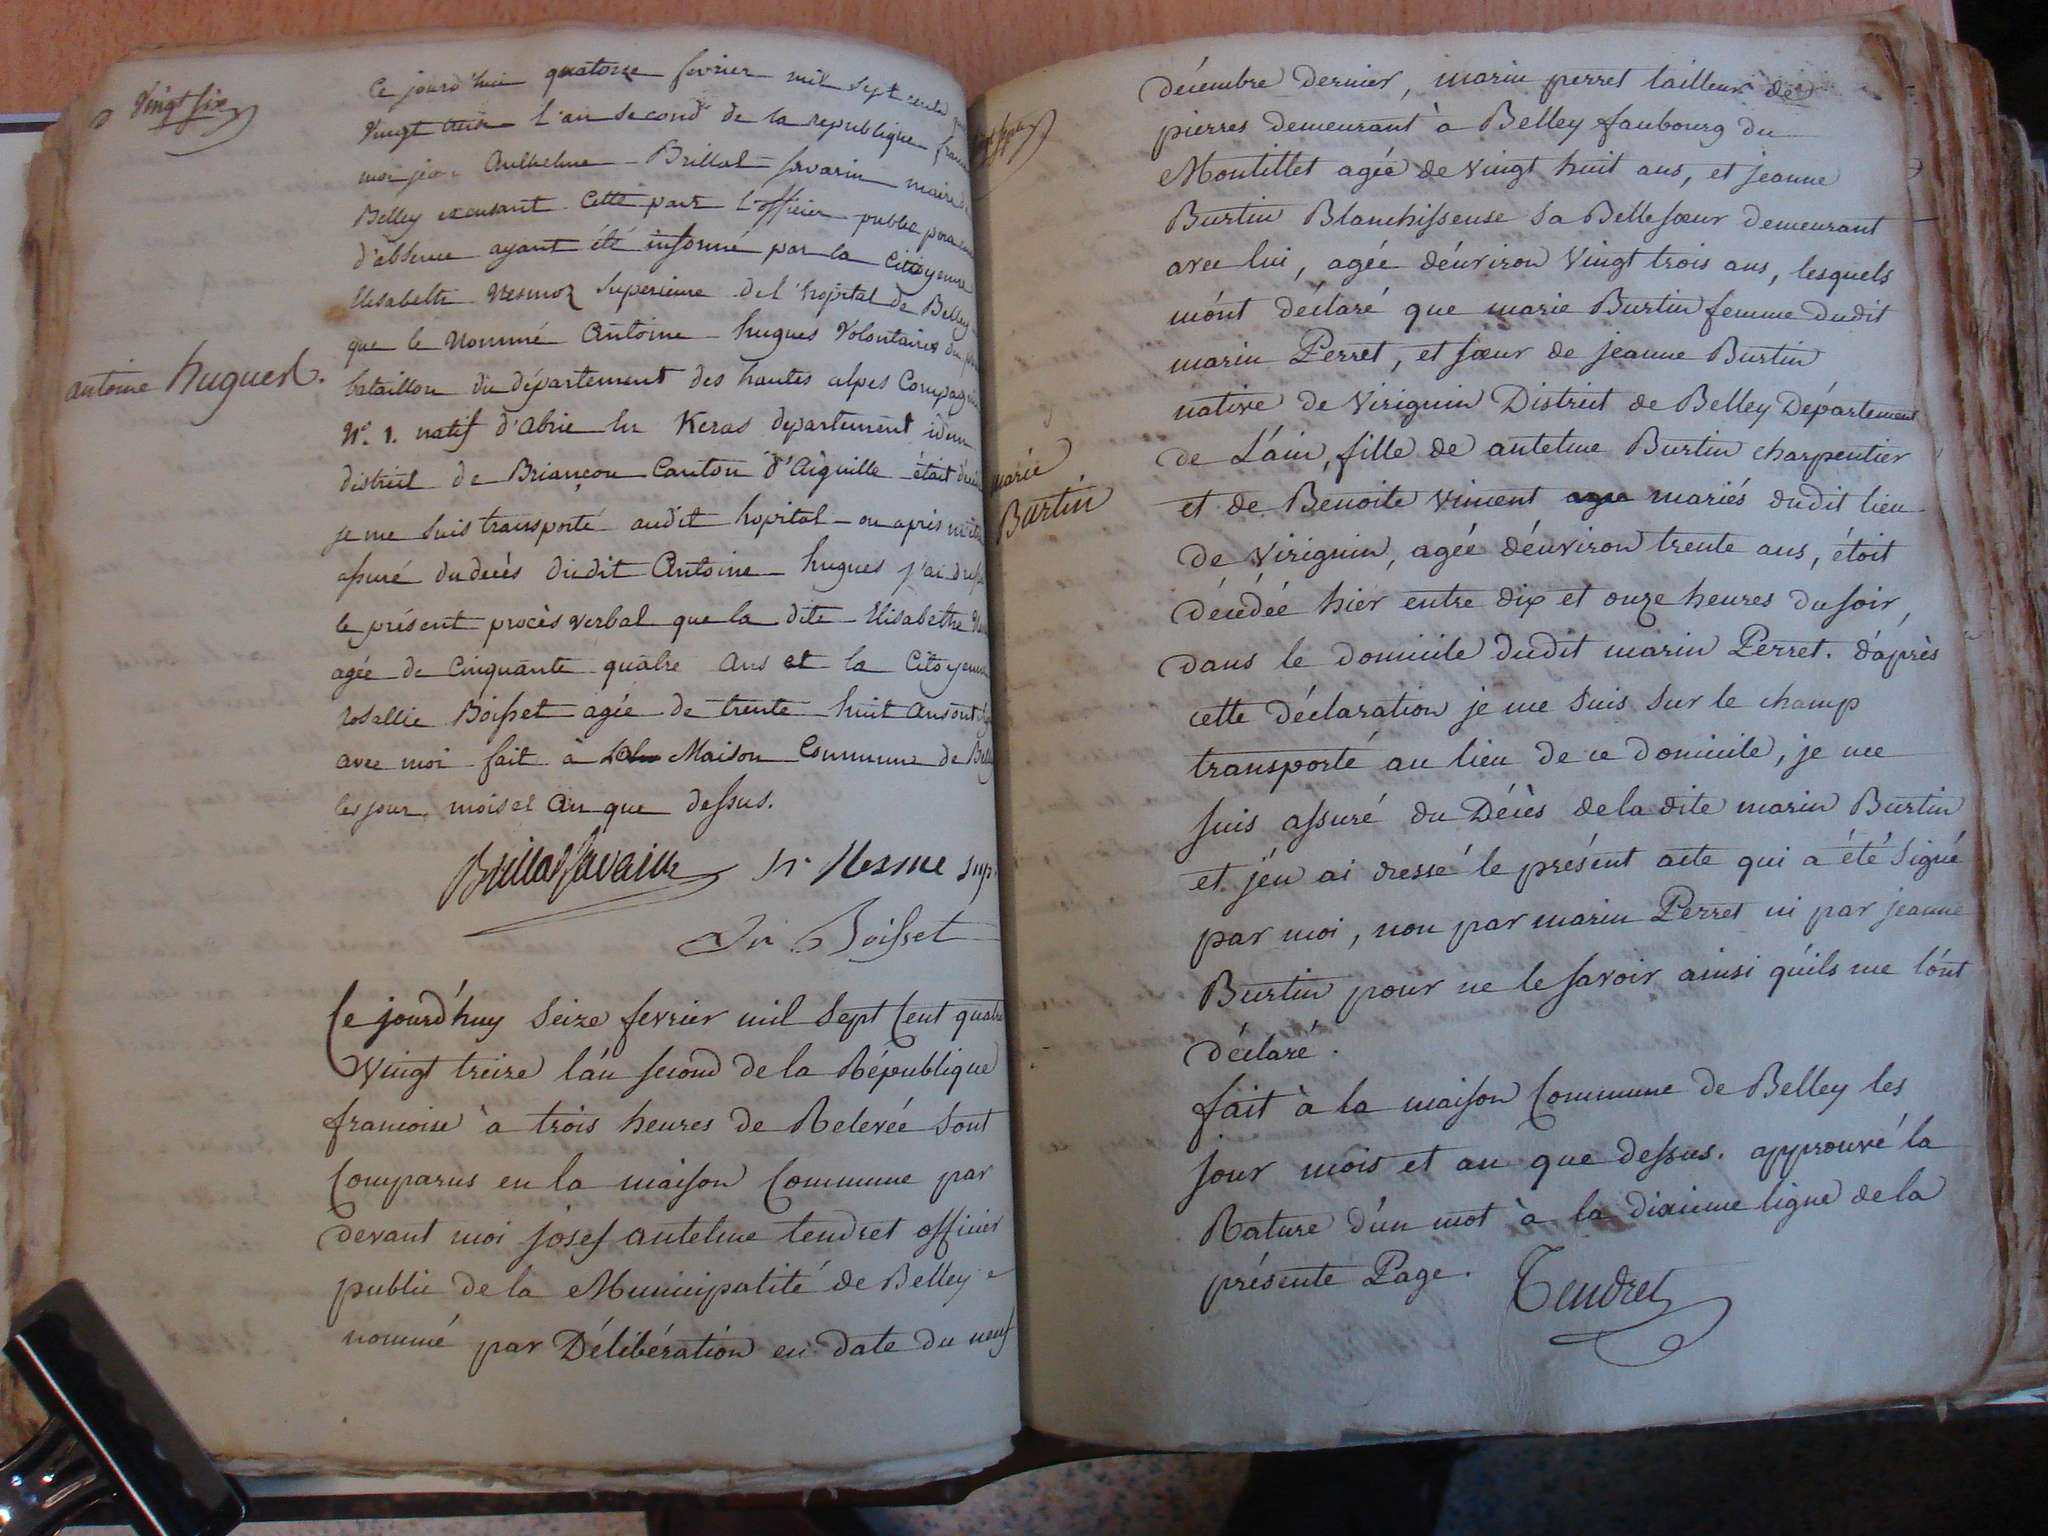 vingt six
Ce jourd'hui quatorze fevrier mil sept cents
vingt treize l'an second de la republique
moi jean Anthelme Brillat savarin maire de
Belley excusant cette part l'officier public pour
d'absence ayant été informé par la Citoyenne
Elisabethe Nesmoz superieure del'hopital de Belley
que le nommé Antoine hugues Volontaire du
antoine hugues
bataillon du département des hautes alpes Compagnie
N°. 1. natif d'Abrie Keras departement idem
district de Briançon Canton d'Aiguille était
je me suis transporté audit hopital ou après
assuré du decès dudit Antoine hugues j'ai
le présent procès verbal que la dite Elisabethe
agée de cinquante quatre ans et la Citoyenne
rosallie Boisset agée de trente huit ans ont
avec moi fait à la Maison Commune de Belley
les jour mois et an que dessus.
Brillat Savarin Sr Nesme sup.
Sr Boisset
Ce jourd'huy seize fevrier mil sept Cent quatre
vingt treize l'an second de la République
francoise à trois heures de Relevée sont
Comparus en la maison Commune par
devant moi josef antelme tendret officier
public de la Municipalité de Belley
nommé par Délibération en date du neuf
décembre dernier, marin perret tailleur de
pierres demeurant à Belley faubourg du
Montillet agée de vingt huit ans, et jeanne
Burtin Blanchisseuse sa Bellesœur demeurant
avec lui, agée d'environ vingt trois ans, lesquels
m'ont déclaré que marie Burtin femme dudit
marin Perret, et sœur de jeanne Burtin
native de Virignin District de Belley Département
de L'ain, fille de antelme Burtin charpentier
marie
Burtin
et de Benoite Viment mariés dudit lieu
de Virignin, agée d'environ trente ans, étoit
décédée hier entre dix et onze heures du soir,
dans le domicile dudit marin Perret. d'après
cette déclaration je me suis sur le champ
transporté au lieu de ce domicile, je me
suis assuré du Décès de la dite marin Burtin
et j'en ai dressé le présent acte qui a été signé
par moi, non par marin Perret ni par jeanne
Burtin pour ne le savoir ainsi qu'ils me l'ont
déclaré.
fait à la maison Commune de Belley les
jour mois et an que dessus. approuvé la
Rature d'un mot à la dixieme ligne de la
présente Page. Tendret